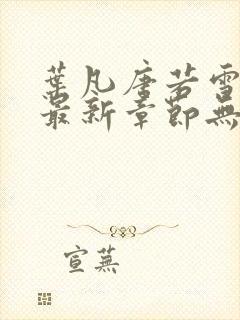 葉凡唐若雪
最新章節無
宣蕪